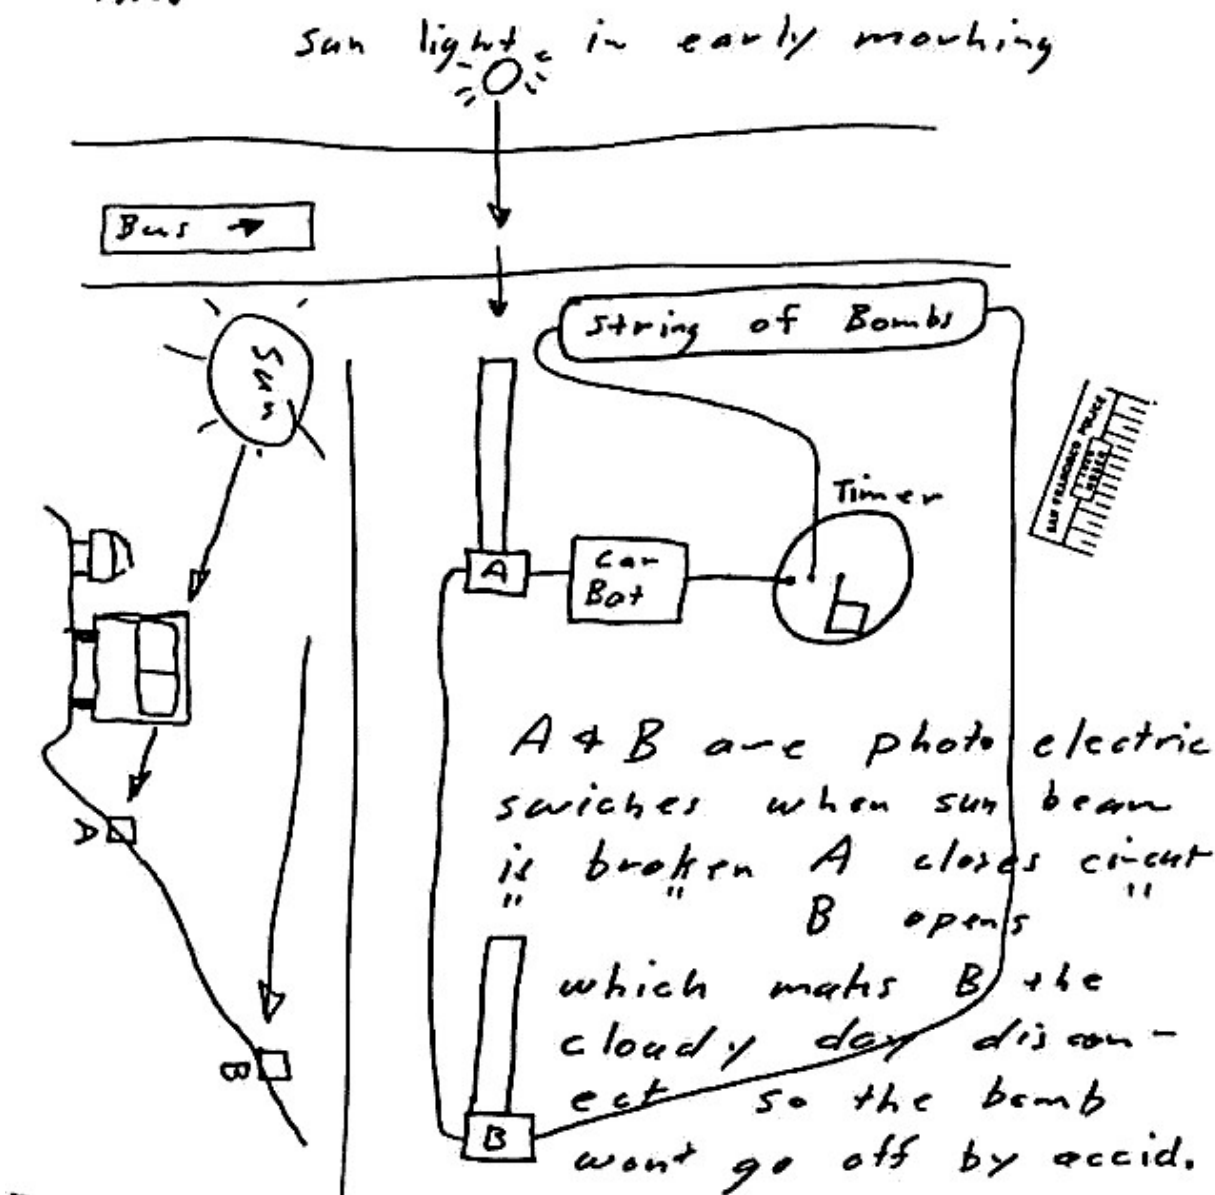 sun light in early morning
Bus
Sun
String of Bombs
SAN FRANCISCO POLICE
Timer
A
Car
Bat
A & B are photo electric
swiches when sun beam
is broken A closes circut
" " B opens "
which maks B the
cloudy day discon-
ect so the bomb
wont go off by accid.
A
B
B